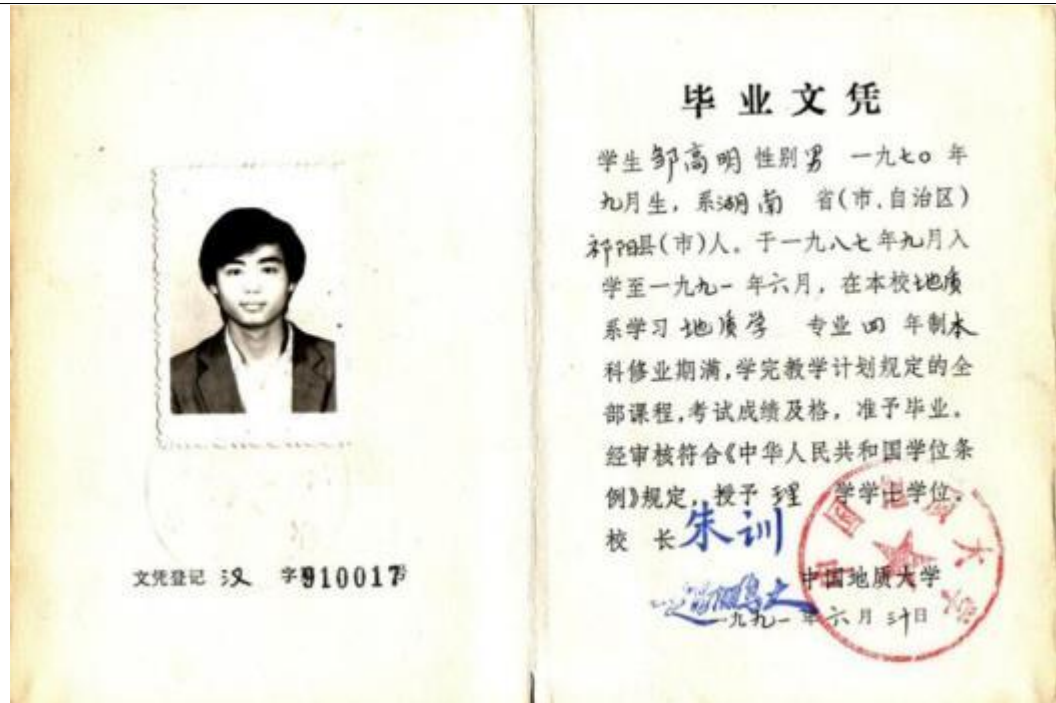 文凭登记 汉 字 910017号
毕业文凭
学生 邹高明 性别 男 一九七〇 年
九月生,系湖南 省(市、自治区)
祁阳县(市)人。于一九八七年九月入
学至一九九一 年六月,在本校地质
系学习 地质学 专业 四 年制本
科修业期满,学完教学计划规定的全
部课程,考试成绩及格,准予毕业。
经审核符合《中华人民共和国学位条
例》规定,授予 理 学学士学位。
校 长 朱训
中国地质大学
中国地质大学
一九九一 年 六 月 卅日